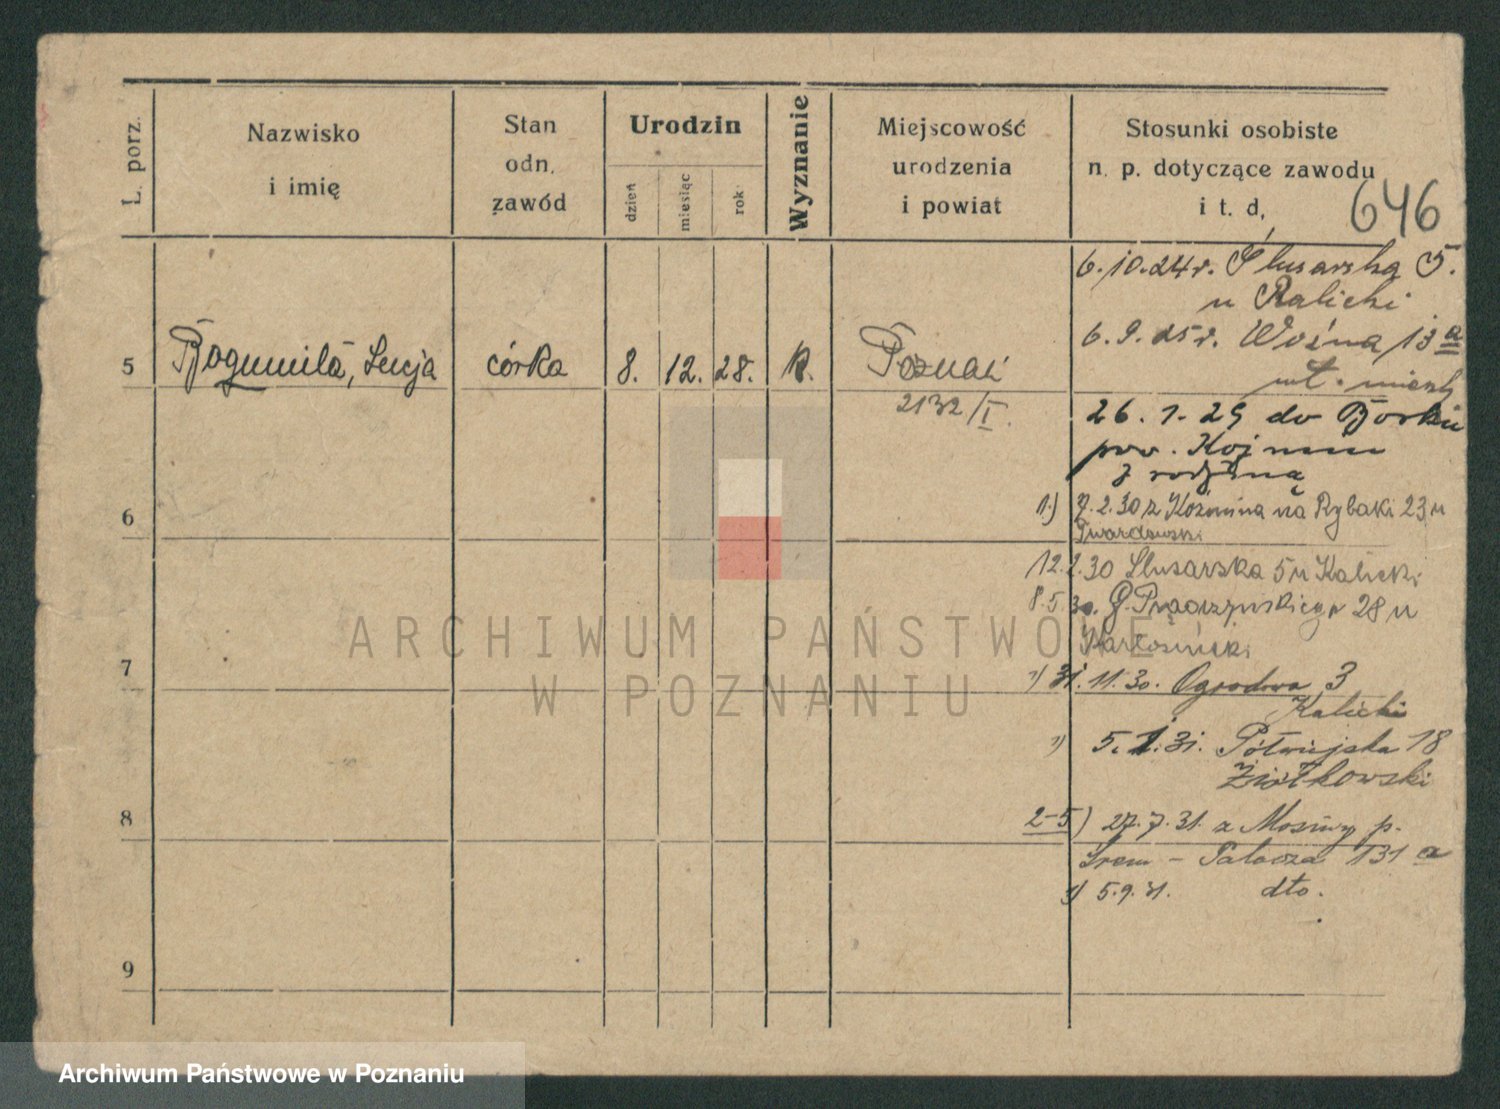 L. porz.
Nazwisko
i imię
Stan
odn.
zawód
Urodzin
dzień
miesiąc
rok
Wyznanie
Miejscowość
urodzenia
i powiat
Stosunki osobiste
n. p. dotyczące zawodu
i t. d,
646
6.10.24r. Ślusarska 5.
u Kalicki
6.9.25r. Woźna 13a
5 Bogumiła, Łucja córka 8. 12. 28. k. Poznań
2132/I.
26.1.29 do Borku
pow. Kojmin
z rodziną
1.) 7.2.30 z Koźmina na Rybaki 23 u
Twardowski
6
12.2.30 Slusarska 5 u Kalicki
8.5.30. 28 u
7
1) 31.11.30. Ogrodowa 3
Kalicki
1) 5.1.31. Półwiejska 18
Ziółkowski
8
2-5) 27.7.31. z Mosiny p.
Śrem - Palacza 131 a
1) 5.9.31. dto.
9
ARCHIWUM PAŃSTWOWE
W POZNANIU
Archiwum Państwowe w Poznaniu